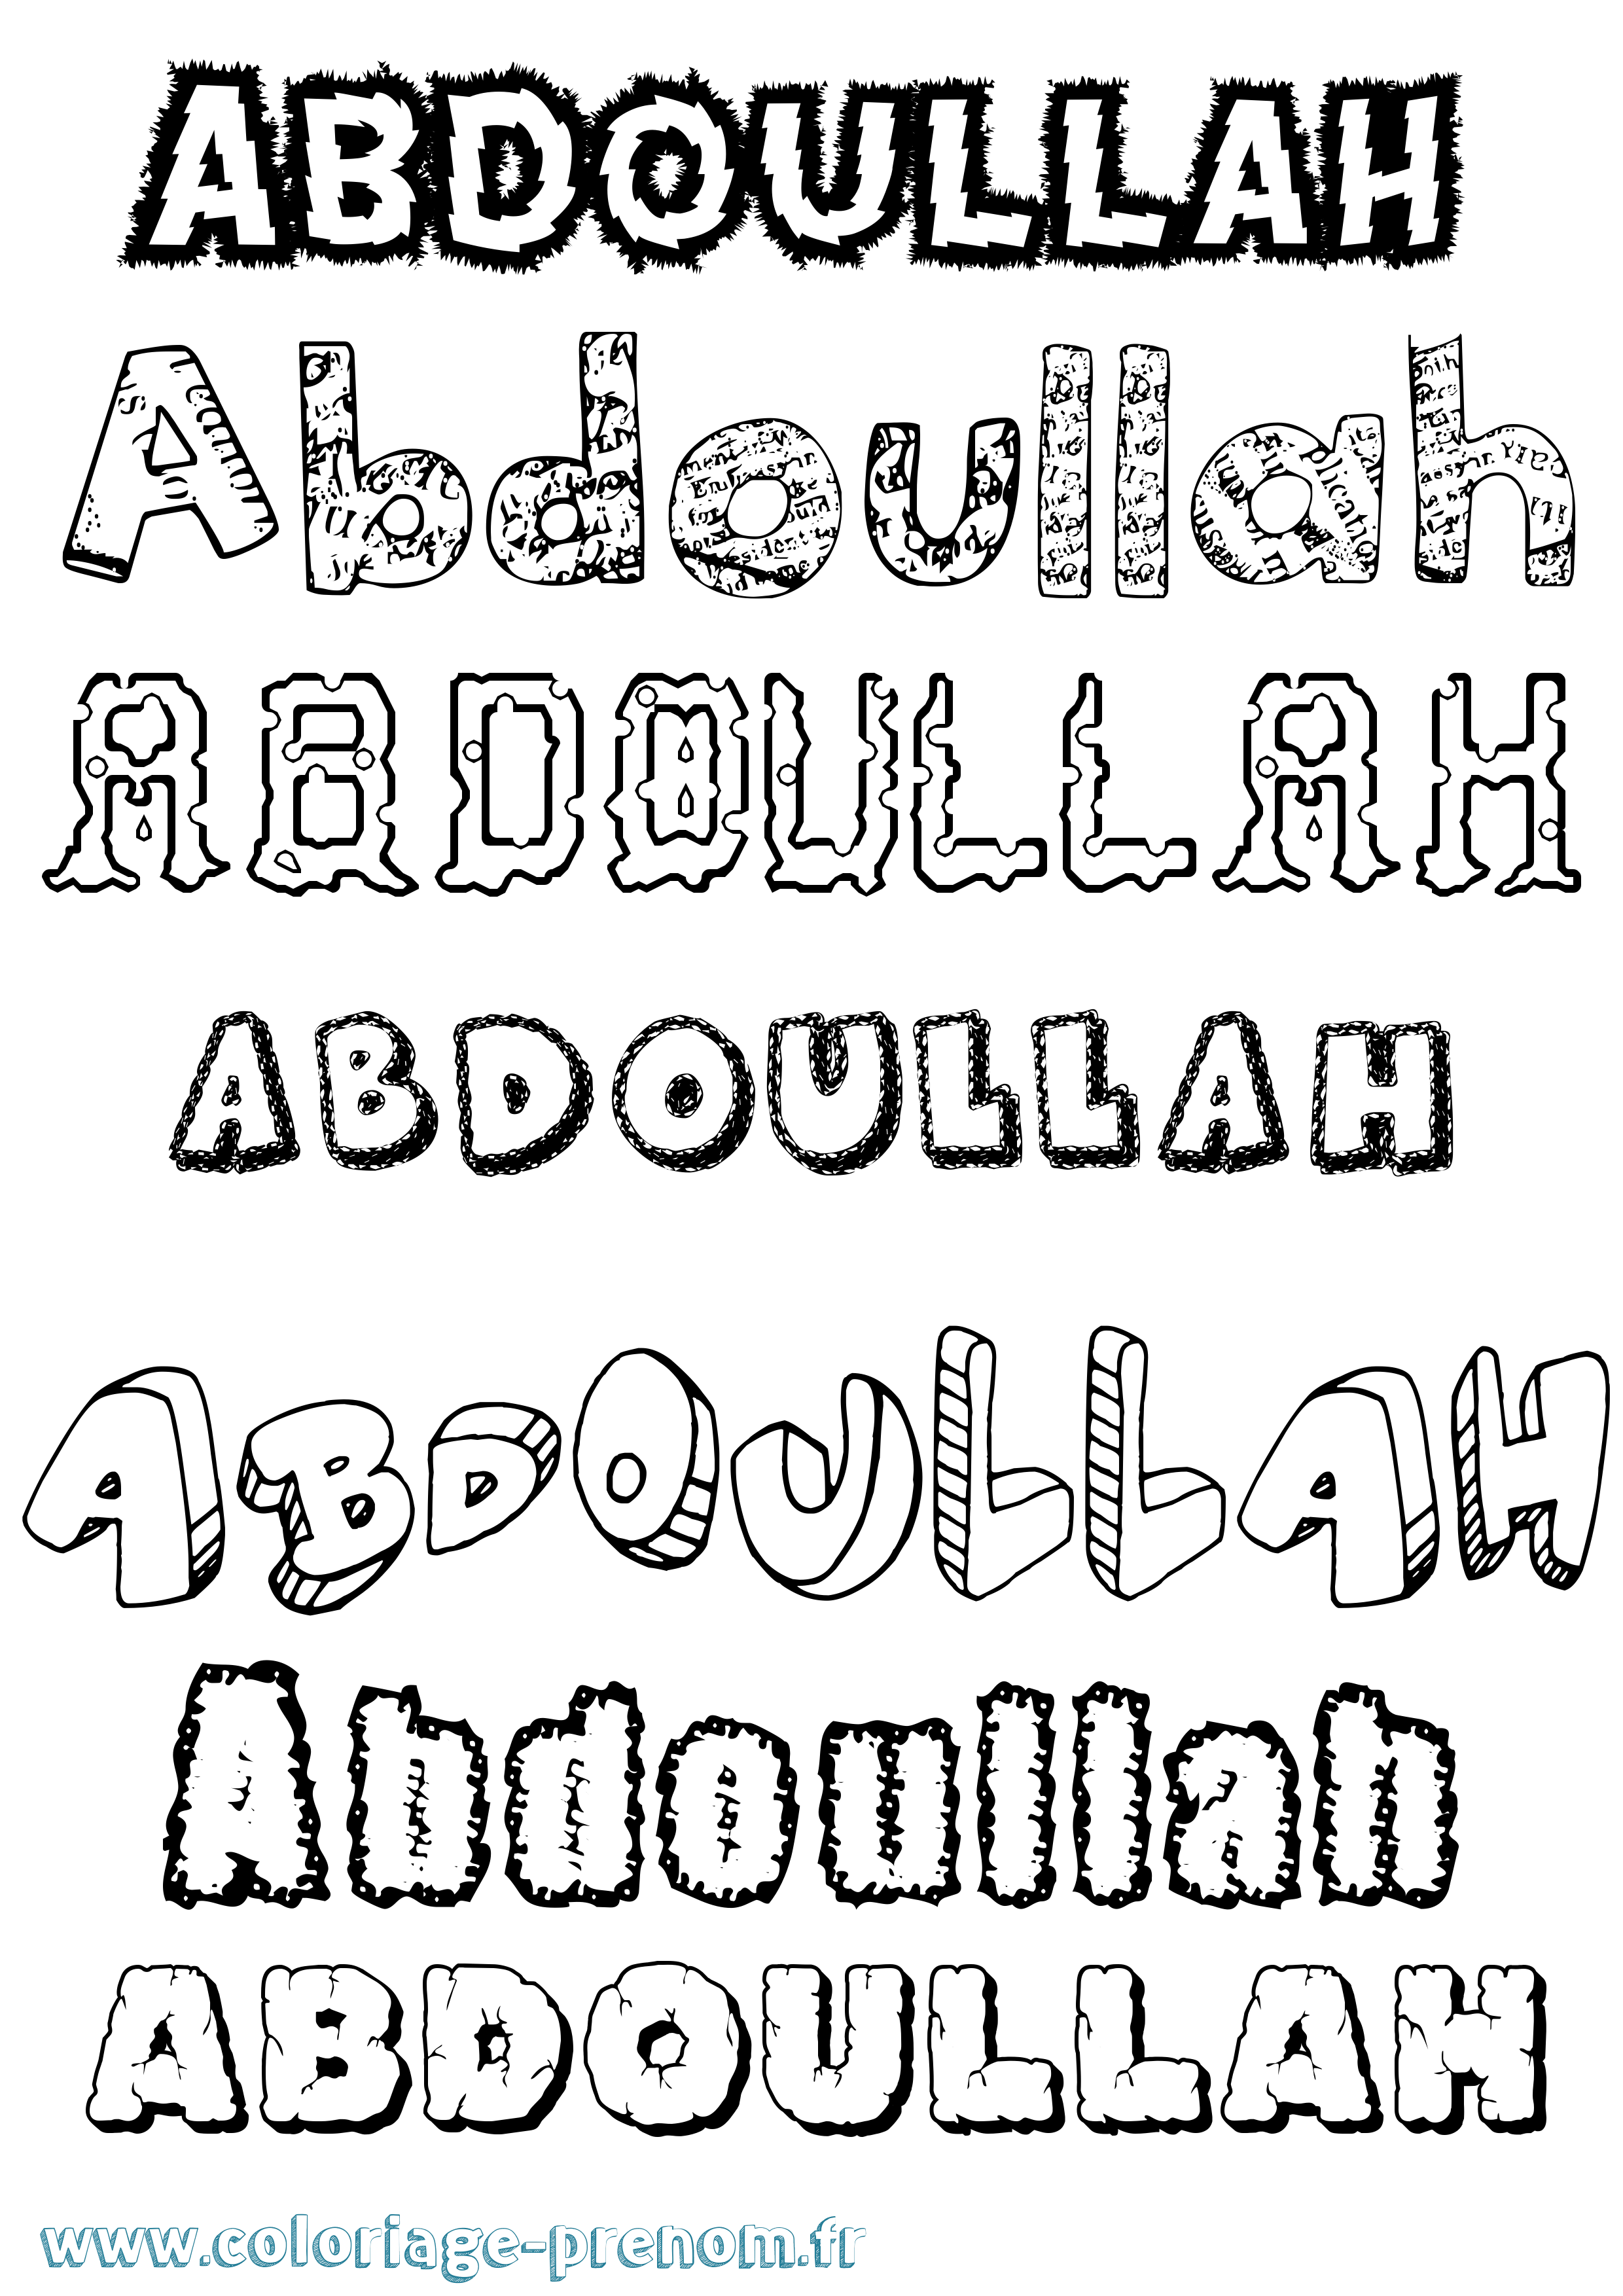 ABDOULLAH
Abdoullah
ABDOULLAH
ABDOULLAH
ABDOULLAH
Abdoullah
ABDOULLAH
www.coloriage-prenom.fr